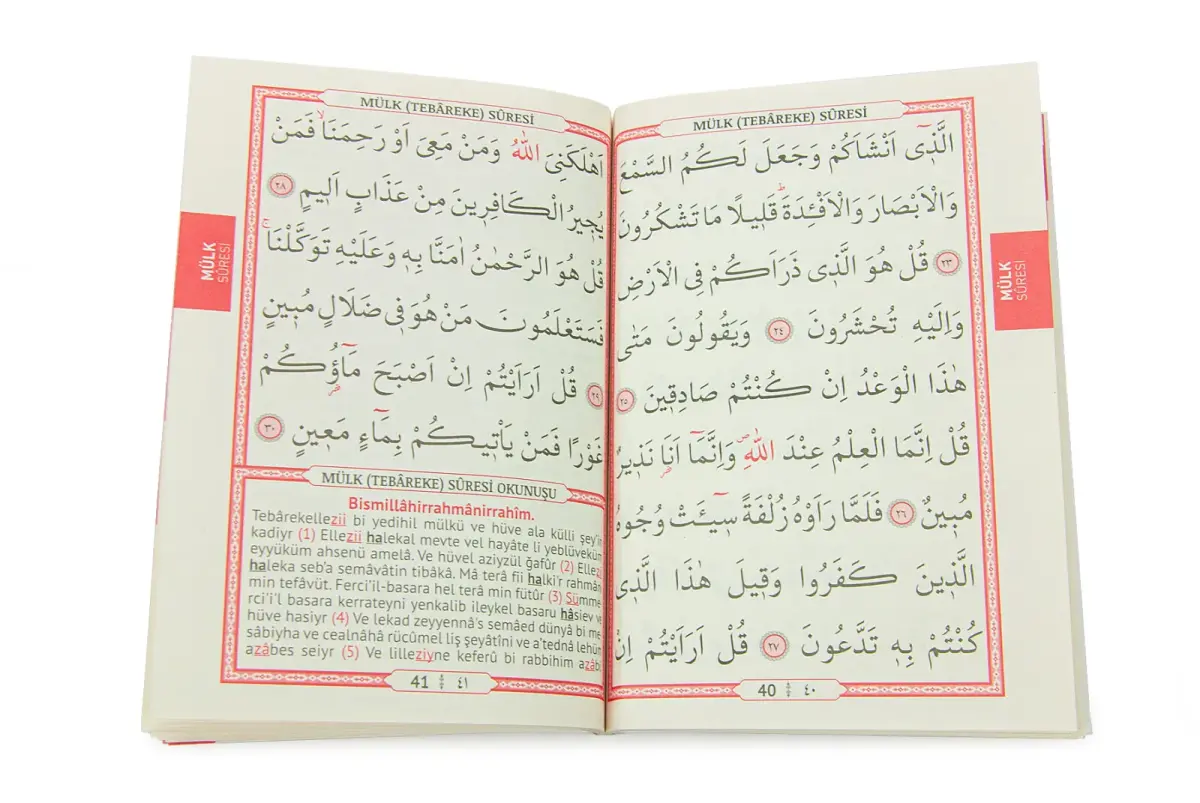 MÜLK (TEBÂREKE) SÛRESİ
الَّذٖٓى اَنْشَاَكُمْ وَجَعَلَ لَكُمُ السَّمْعَ
وَالْاَبْصَارَ وَالْاَفْـِٔدَةَؕ قَلٖيلًا مَا تَشْكُرُونَ
﴿٢٣﴾ قُلْ هُوَ الَّذٖى ذَرَاَكُمْ فِى الْاَرْضِ
وَاِلَيْهِ تُحْشَرُونَ ﴿٢٤﴾ وَيَقُولُونَ مَتٰى
هٰذَا الْوَعْدُ اِنْ كُنْتُمْ صَادِقٖينَ ﴿٢٥﴾
قُلْ اِنَّمَا الْعِلْمُ عِنْدَ اللّٰهِࣕ وَاِنَّمَٓا اَنَا نَذٖيرٌ
مُبٖينٌ ﴿٢٦﴾ فَلَمَّا رَاَوْهُ زُلْفَةً سٖٓيـَٔتْ وُجُوهُ
الَّذٖينَ كَفَرُوا وَقٖيلَ هٰذَا الَّذٖى
كُنْتُمْ بِهٖ تَدَّعُونَ ﴿٢٧﴾ قُلْ اَرَاَيْتُمْ اِنْ
40 ٤٠
MÜLK SÛRESİ
MÜLK (TEBÂREKE) SÛRESİ
اَهْلَكَنِىَ اللّٰهُ وَمَنْ مَعِىَ اَوْ رَحِمَنَاۙ فَمَنْ
يُجٖيرُ الْكَافِرٖينَ مِنْ عَذَابٍ اَلٖيمٍ ﴿٢٨﴾
قُلْ هُوَ الرَّحْمٰنُ اٰمَنَّا بِهٖ وَعَلَيْهِ تَوَكَّلْنَاۚ
فَسَتَعْلَمُونَ مَنْ هُوَ فٖى ضَلَالٍ مُبٖينٍ
﴿٢٩﴾ قُلْ اَرَاَيْتُمْ اِنْ اَصْبَحَ مَٓاؤُكُمْ
غَوْرًا فَمَنْ يَاْتٖيكُمْ بِمَٓاءٍ مَعٖينٍ ﴿٣٠﴾
MÜLK (TEBÂREKE) SÛRESİ OKUNUŞU
Bismillâhirrahmânirrahîm.
Tebârekellezii bi yedihil mülkü ve hüve ala külli şey'in
kadiyr (1) Ellezii halekal mevte vel hayâte li yeblüveküm
eyyüküm ahsenü amelâ. Ve hüvel aziyzül ğafûr (2) Ellezi
haleka seb'a semâvâtin tibâkâ. Mâ terâ fii halki'r rahmân
min tefâvüt. Ferci'il-basara hel terâ min fütûr (3) Sümme
rci'i'l basara kerrateyni yenkalib ileykel basaru hâsiev ve
hüve hasiyr (4) Ve lekad zeyyennâ's semâed dünyâ bi me
sâbiyha ve cealnâhâ rücûmel liş şeyâtîni ve a'tednâ lehüm
azâbes seiyr (5) Ve lilleziyne keferû bi rabbihim azâbü
41 ٤١
MÜLK SÛRESİ